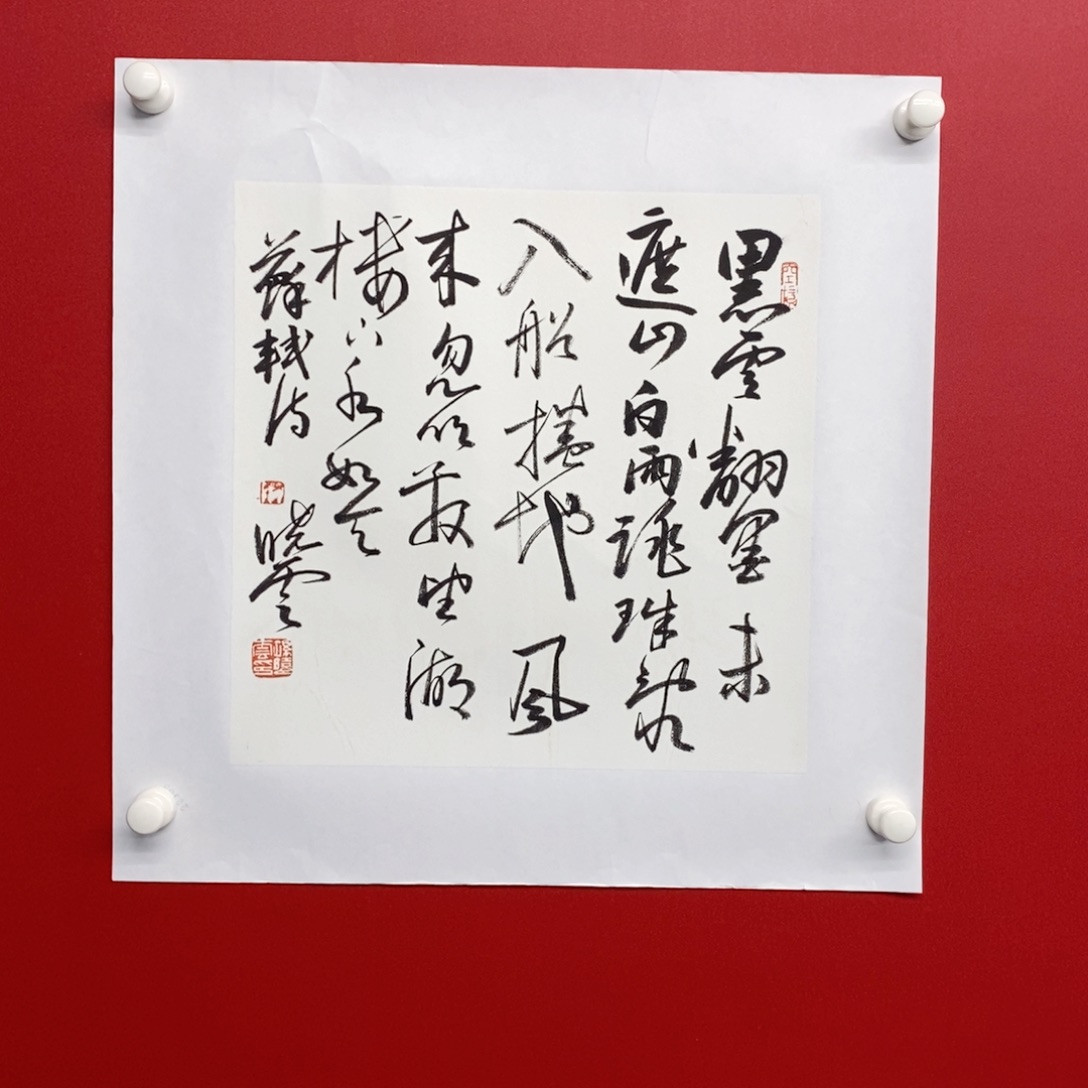 黑雲翻墨未
遮山白雨跳珠亂
入船捲地風
来忽吹散望湖
樓下水如天
蘇軾詩
曉雲